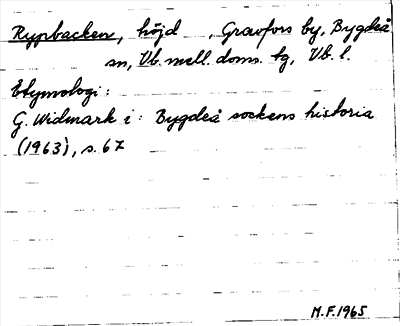 Rypbacken, höjd , Gravfors by, Bygdeå
sn, Vb. mell. doms. tg, Vb. l.
Etymologi:
G. Widmark i: Bygdeå sockens historia
(1963), s. 67
M.F. 1965